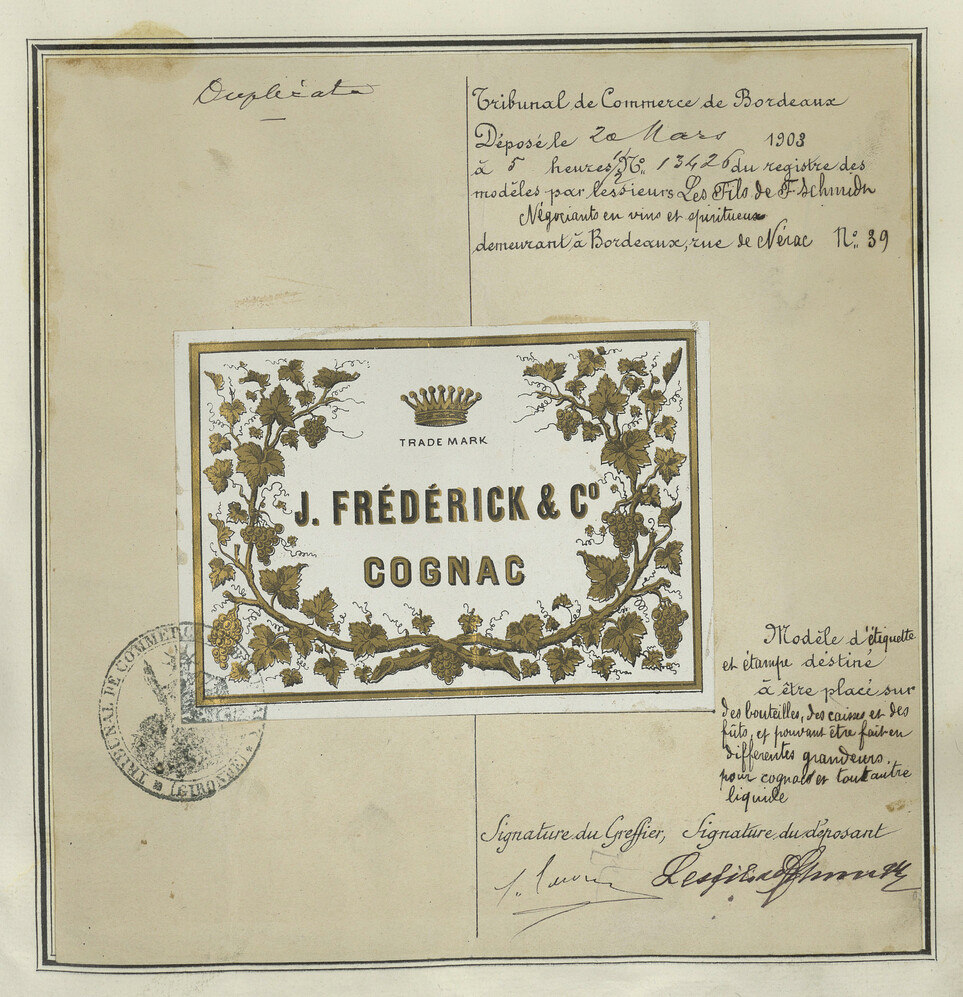 Duplicata
Tribunal de Commerce de Bordeaux
Déposé le 20 Mars 1903
à 5 heures 1/2 No. 13426 du registre des
modèles par les sieurs Les Fils de F. Schmidt
Négociants en vins et spiritueux
demeurant à Bordeaux, rue de Nérac No. 39
TRADE MARK
J. FRÉDÉRICK & Co
COGNAC
TRIBUNAL DE COMMERCE
(GIRONDE)
Modèle d'étiquette
et étampe destiné
à être placé sur
des bouteilles, des caisses et des
fûts, et pouvant être fait en
différentes grandeurs.
pour cognac et tout autre
liquide
Signature du Greffier, Signature du déposant
Les fils de F. Schmidt